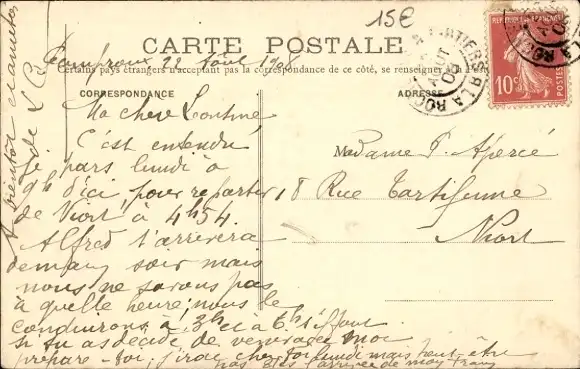 15€
CARTE POSTALE
22 Août 1908
Certains pays étrangers n'acceptent pas la correspondance de ce côté, se renseigner à la Poste
CORRESPONDANCE
ADRESSE
REPUBLIQUE FRANÇAISE
10c
POSTES
LA ROC
AOUT
08
Ma chere Leontine
C'est entendu
je pars lundi à
9h d'ici, pour repartir
de Niort à 4h54.
Alfred t'arrivera
demain soir mais
nous ne savons pas
à quelle heure; nous le
conduirons à 3h et à 6h s'il faut
si tu as décidé de venir avec moi
prépare-toi, j'irai chez toi lundi mais peut-être
pas dès l'arrivée de mon train
A bientôt
de L
Madame P.
18 Rue Tartifume
Niort